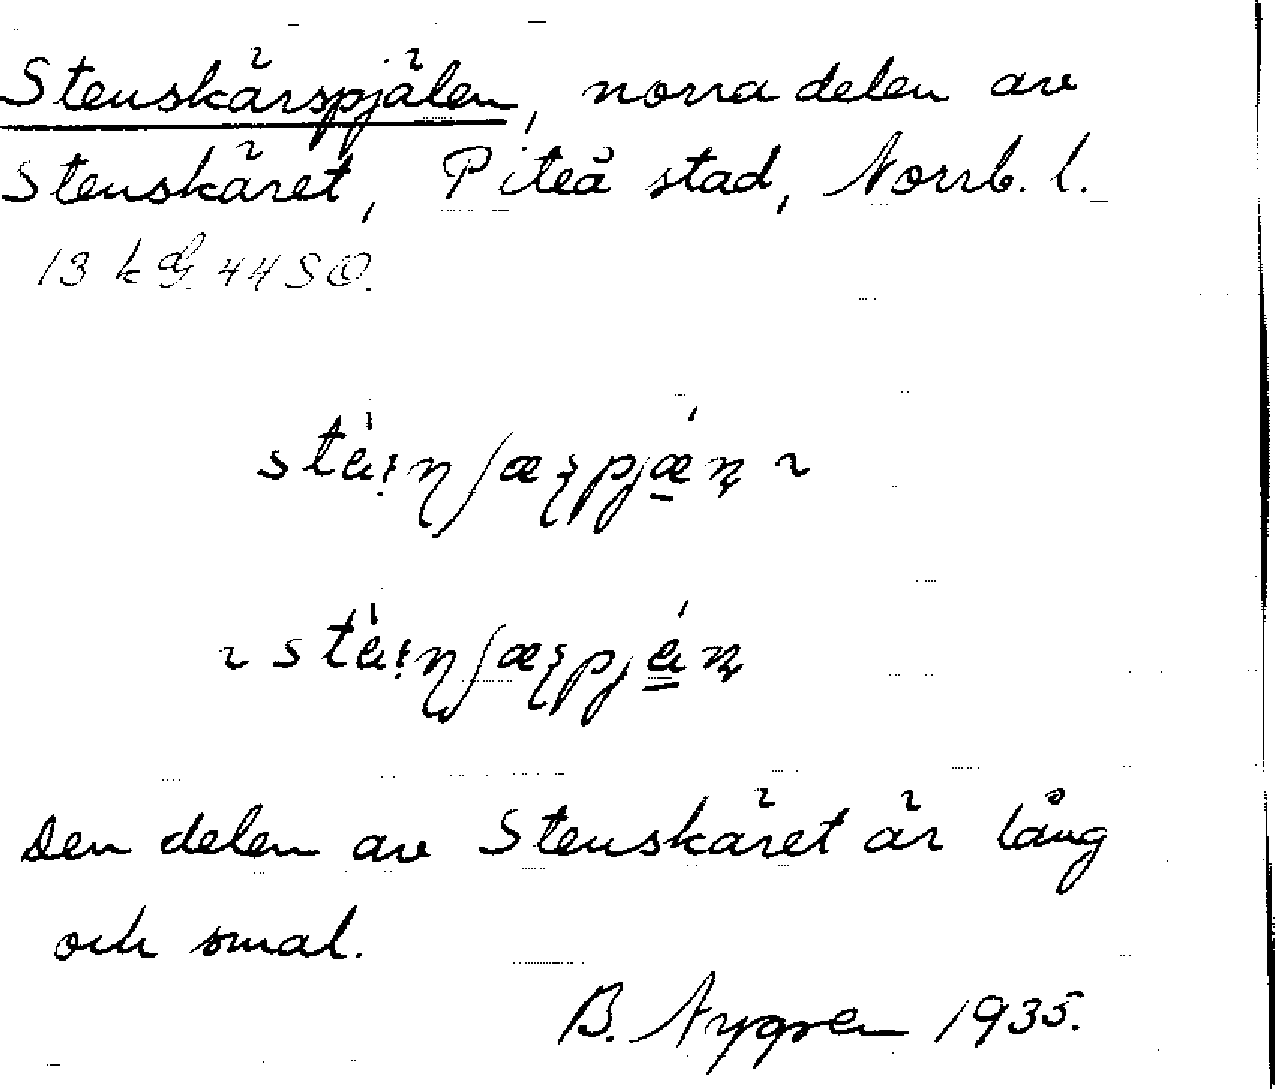 Stenskärspjälen, norra delen av
Stenskäret, Piteå stad, Norrb. l.
13 k 44 SO.
Den delen av Stenskäret är lång
och smal.
B. Nygren 1935.